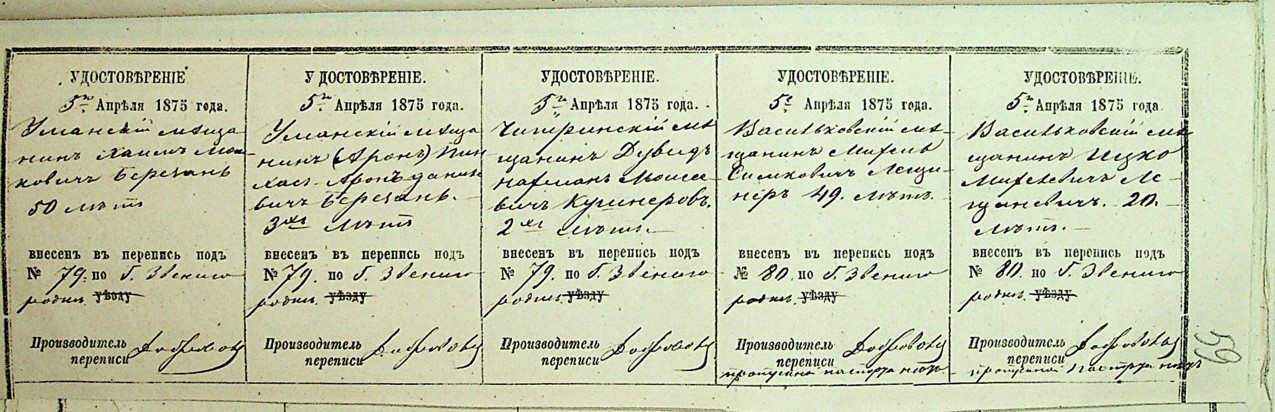 УДОСТОВѢРЕНІЕ
5го Апрѣля 1875 года.
Уманскій мѣща
нинъ Хаимъ Мош
ковичъ Березанъ
50 лѣтъ
внесенъ въ перепись подъ
№ 79. по г. Звениго
родкѣ. уѣзду
Производитель
переписи
УДОСТОВѢРЕНІЕ.
5го Апрѣля 1875 года.
Уманскій мѣща
нинъ (Аронъ) Пин
хасъ
вичъ Березанъ.
3хъ лѣтъ
внесенъ въ перепись подъ
№ 79. по г. Звениго
родкѣ. уѣзду
Производитель
переписи
УДОСТОВѢРЕНІЕ.
5го Апрѣля 1875 года.
Чигиринскій мѣ
щанинъ Дувидъ
Нафманъ Моисее
вичъ Кушнеровъ.
2хъ лѣтъ.
внесенъ въ перепись подъ
№ 79. по г. Звениго
родкѣ. уѣзду
Производитель
переписи
УДОСТОВѢРЕНІЕ.
5го Апрѣля 1875 года.
Васильковскій мѣ
щанинъ Михель
Симковичъ
49. лѣтъ.
внесенъ въ перепись подъ
№ 80. по г. Звениго
родкѣ. уѣзду
Производитель
переписи
УДОСТОВѢРЕНІЕ.
5го Апрѣля 1875 года
Васильковскій мѣ
щанинъ Ицко
Михелевичъ Ле
20.
лѣтъ.
внесенъ въ перепись подъ
№ 80. по г. Звениго
родкѣ. уѣзду
Производитель
переписи
65